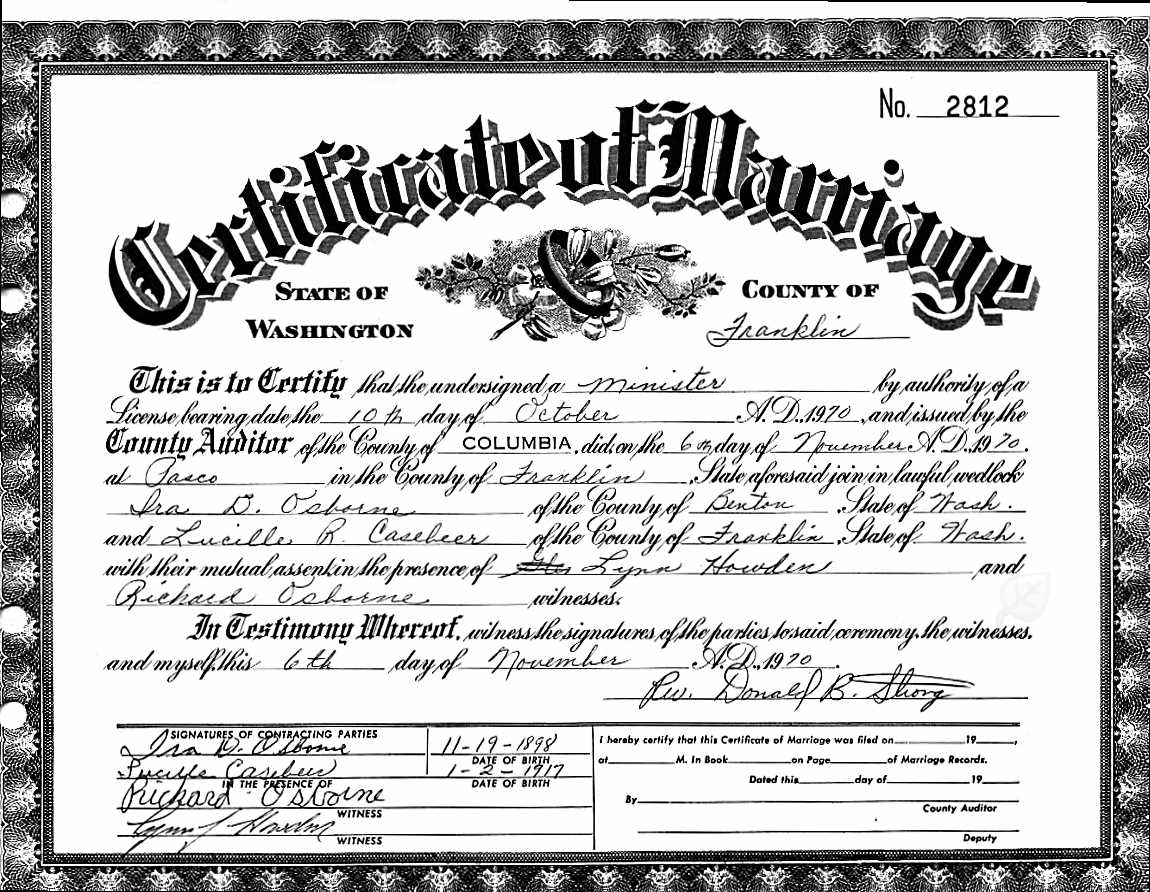 No. 2812
Certificate of Marriage
STATE OF WASHINGTON
COUNTY OF Franklin
This is to Certify that the undersigned a Minister by authority of a
License bearing date the 10th day of October A.D. 1970, and issued by the
County Auditor of the County of COLUMBIA, did on the 6th day of November A.D. 1970.
at Pasco in the County of Franklin, State aforesaid join in lawful wedlock
Ira D. Osborne of the County of Benton, State of Wash.
and Lucille R. Casebeer of the County of Franklin, State of Wash.
with their mutual assent in the presence of Lynn Howden and
Richard Osborne witnesses.
In Testimony Whereof, witness the signatures of the parties to said ceremony, the witnesses,
and myself, this 6th day of November A.D., 1970.
Rev. Donald B. Strong
SIGNATURES OF CONTRACTING PARTIES
Ira D. Osborne 11-19-1898
DATE OF BIRTH
Lucille Casebeer 1-2-1917
IN THE PRESENCE OF DATE OF BIRTH
Richard Osborne
WITNESS
Lynn J Howden
WITNESS
I hereby certify that this Certificate of Marriage was filed on 19 ,
at M. In Book on Page of Marriage Records.
Dated this day of 19
By
County Auditor
Deputy